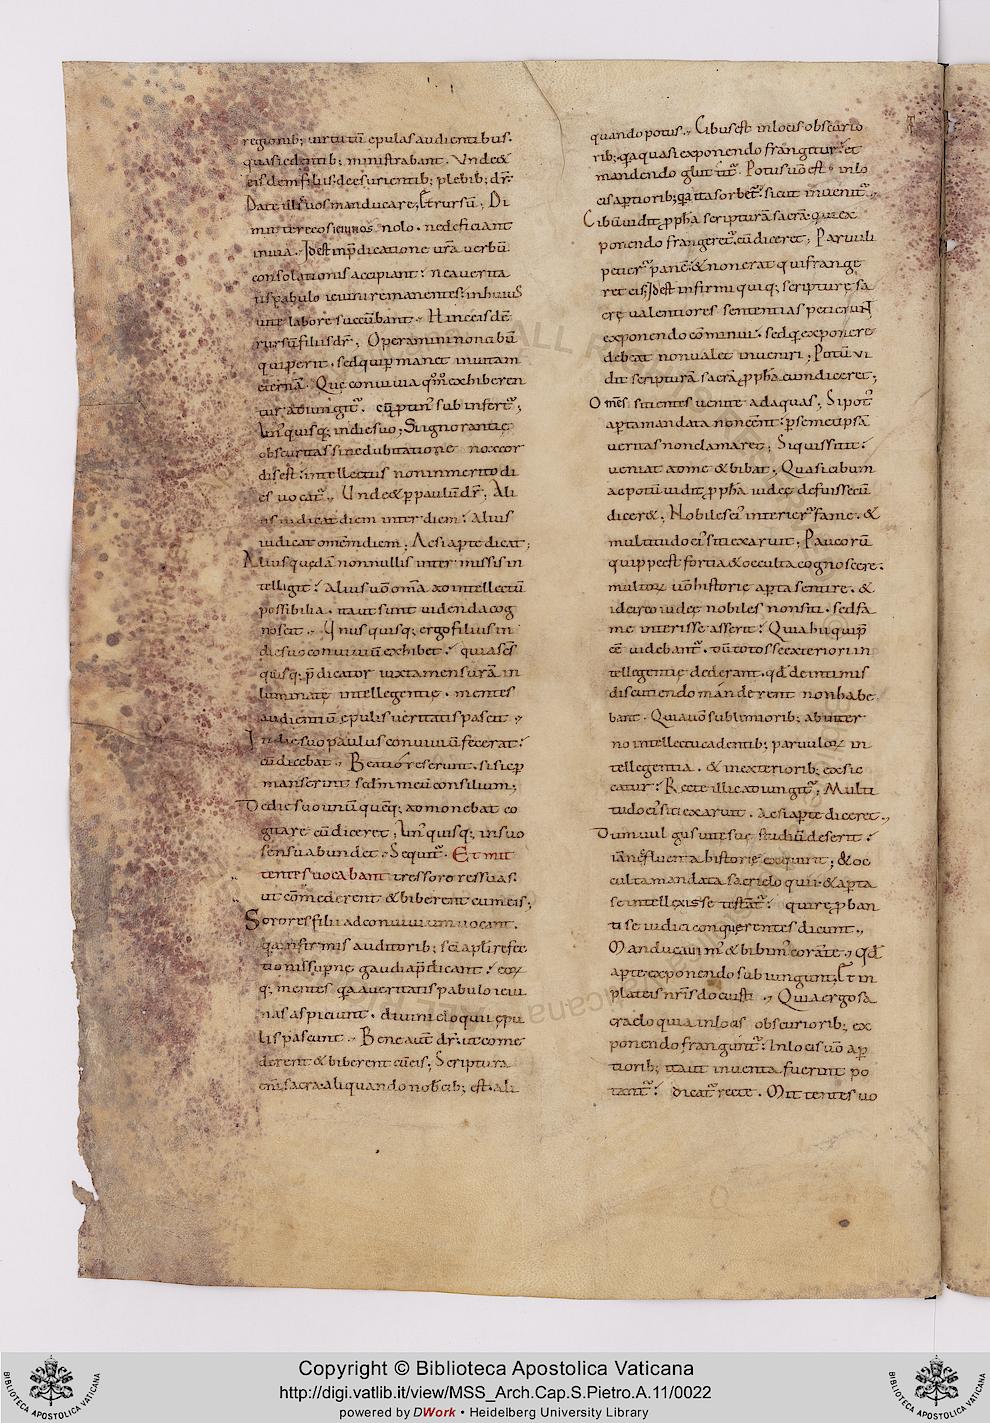 regionib; uirtutū epulas audientibus.
quasi edentib; ministrabant. Vnde &
eisdem filiis dee surientib; plebib; dr̄.
Date illis uos manducare; Et rursū; Di
mittere eos ieiunos nolo. ne deficiant
in uia. Id est in p̄dicatione ur̄a uerbū
consolationis accipiant. ne a uerita
tis pabulo ieiuni remanentes. in huius
uite labore succūbant. Hinc eis dē
rursū filiis dr̄; Operamini non cibū
qui perit. sed qui ꝑmanet in uitam
eternā. Que conuiuia qm̄ exhiberen
tur adiungit̄. cū ꝓtin' sub infert̄;
Vn' quisq; in die suo; Si ignorantie
obscuritas sine dubitatione nox cor
dis est. intellectus non inmerito di
es uocat̄. Unde & ꝑ paulū dr̄; Ali
us iudicat diem inter diem. alius
iudicat omēm diem; Ac si aꝑte dicat;
Alius quedā nonnullis inter missis in
tellegit. alius uō om̄a ad intellectū
possibilia. ita ut sunt uidenda cog
noscit. Vnus quisq; ergo filius in
die suo conuiuiū exhibet. quia sc̄s
quisq; p̄dicator iuxta mensurā in
luminate intellegentię. mentes
audientiū epulis ueritatis pascit.
In die suo paulus conuiuiū fecerat.
cū dicebat. Beatior erunt. si sic ꝑ
manserint sc̄dm meū consilium;
De die suo unū quēq; admonebat co
gitare cū diceret; Vn' quisq; in suo
sensu abundet. Sequit̄. Et mit
tentes uocabant tres sorores suas.
ut com̄ederent & biberent cum eis;
Sorores filii ad conuiuium uocant.
qa infirmis auditorib; sc̄i apl̄i refec
tionis supne gaudia p̄dicant. eorꝝ
q; mentes qa a ueritatis pabulo ieiu
nas aspiciunt. diuini eloquii epu
lis pascunt. Bene aut̄ dr̄. ut come
derent & biberent cū eis; Scriptura
eni sacra aliquando nob̄ cib; est. ali
quando potus. Cibus est in locis obscurio
rib; qa quasi exponendo frangitur. et
mandendo glut tit̄. Potus uō est in lo
cis aꝑtiorib; qa ita sorbet̄. sicut inuenit̄.
Cibū uidit ꝓpha scripturā sacrā. qui ex
ponendo frangeret̄. cū diceret; Paruuli
petier̄ panē. & non erat qui frange
ret eis; Id est infirmi quiq; scripture sa
cre ualentiores sententias petierunt
exponendo com̄inui. sed q̄ exponere
debeat non ualet inueniri; Potū ui
dit scripturā sacrā ꝓpha cum diceret;
Om̄es sitientes uenite ad aquas; Si pot'
aꝑta mandata non eēnt. ꝑ semet ipsā
ueritas non clamaret; Si quis sitit.
ueniat ad me & bibat; Quasi cibum
ac potū uidit ꝓpha iudee defuisse cū
dicer&; Nobiles ei' interier̄ fame. &
multitudo ei' siti exaruit; Paucorū
quippe est fortia & occulta cognoscere.
multorꝝ uō historie aꝑta sentire. &
idcirco iudeę nobiles non siti. sed fa
me interisse asserit. Quia hii qui p̄
eē uidebant̄. dū totos se exteriori in
tellegentie dederant. qd̄ de intimis
discutiendo manderent non habe
bant. Quia uō sublimiorib; ab inter
no intellectu cadentib; paruulorꝝ in
tellegentia. & in exteriorib; exsic
catur. Recte illic adiungit̄; Multi
tudo ei' siti exaruit. Ac si aꝑte diceret.
Dum uulgus uite sue studiū deserit.
iā nec fluenta historie exquirit; &oc
culta mandata sacri eloquii. & aꝑta
se intellexisse testant̄. qui reꝓban
ti se iudici conquerentes dicunt.
Manducauim' & bibim' corā te. qd̄
aꝑte exponendo sub iungunt. Et in
plateis nr̄is docuisti. Quia ergo sa
cra eloquia in locis obscurioribˌ; ex
ponendo frangunt̄. In locis uō aꝑ
tiorib; ita ut inuenta fuerint po
tant̄. dicat̄ recte. Mittentes uo
Copyright © Biblioteca Apostolica Vaticana
http://digi.vatlib.it/view/MSS_Arch.Cap.S.Pietro.A.11/0022
powered by DWork • Heidelberg University Library
BIBLIOTECA APOSTOLICA VATICANA
BIBLIOTECA APOSTOLICA VATICANA